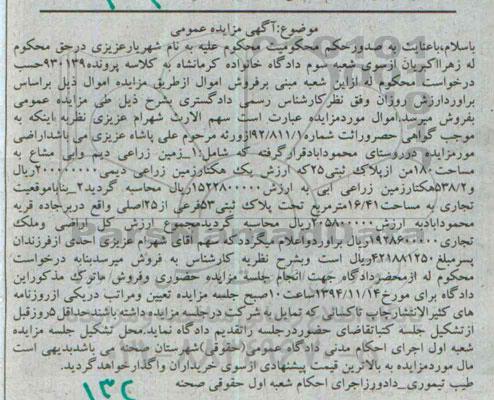 موضوع:آگهی مزایده عمومی
باسلام،باعنایت به صدورحکم محکومیت محکوم علیه به نام شهریارعزیزی درحق محکوم
له زهرااکبریان ازسوی شعبه سوم دادگاه خانواده کرمانشاه به کلاسه پرونده۹۳۰۱۳۹حسب
درخواست محکوم له ازاین شعبه مبنی برفروش اموال ازطریق مزایده اموال ذیل براساس
برآوردارزش روزآن وفق نظرکارشناس رسمی دادگستری بشرح ذیل طی مزایده عمومی
بفروش میرسد.اموال موردمزایده عبارت است سهم الارث شهرام عزیزی نظربه اینکه به
موجب گواهی حصروراثت شماره۹۲/۸۱۱/۱ازورثه مرحوم علی پاشاه عزیزی می باشداراضی
موردمزایده درروستای محمودابادقرارگرفته که شامل:۱_زمین زراعی دیم وآبی مشاع به
مساحت۱۸۰من ازپلاک ثبتی۲۵که ارزش یک هکتارزمین زراعی دیمی۲۰۰۰۰۰۰۰۰ریال
و۵۳۸/۲هکتارزمین زراعی آبی به ارزش۱۵۲۲۸۰۰۰۰۰ریال محاسبه گردید۲_بناباموقعیت
تجاری به مساحت۱۶/۴۱مترمربع تحت پلاک ثبتی۵۳فرعی از۲۵اصلی واقع دربرجاده قریه
محمودابادبه ارزش۲۰۵۸۰۰۰۰۰ریال محاسبه گردیدمجموع ارزش کل اراضی وملک
تجاری۱۹۲۸۶۰۰۰۰۰ریال برآوردواعلام میگرددکه سهم آقای شهرام عزیزی احدی ازفرزندان
پسرمبلغ۴۲۱۸۸۱۲۵۰ریال است وبشرح نظریه کارشناس به فروش میرسدبنابه درخواست
محکوم له ازمحضردادگاه جهت انجام جلسه مزایده حضوری وفروش ماترک مذکوراین
دادگاه برای مورخ۱۳۹۴/۱۱/۱۴ساعت۱۰صبح جلسه مزایده تعیین ومراتب دریکی ازروزنامه
های کثیرالانتشارچاپ تاکسانی که تمایل به شرکت درجلسه مزایده داشته باشندحداقل۵روزقبل
ازتشکیل جلسه کتباتقاضای حضوردرجلسه راتقدیم دادگاه نماید.محل تشکیل جلسه مزایده
شعبه اول اجرای احکام مدنی دادگاه عمومی(حقوقی)شهرستان صحنه می باشدبدیهی است
مال موردمزایده به بالاترین قیمت پیشنهادی ازسوی خریداران واگذارخواهدگردید.
طیب تیموری_دادورزاجرای احکام شعبه اول حقوقی صحنه
۱۳۲